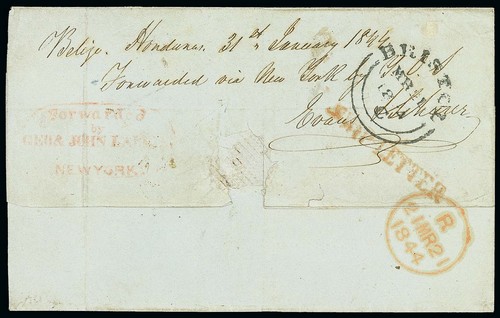 Belize. Honduras 31st January 1844
Forwarded via New York by
Evans
Forwarded
by
GEO & JOHN
NEW YORK
BRISTOL
MR
SHIP LETTER
R
21 MR 21
1844